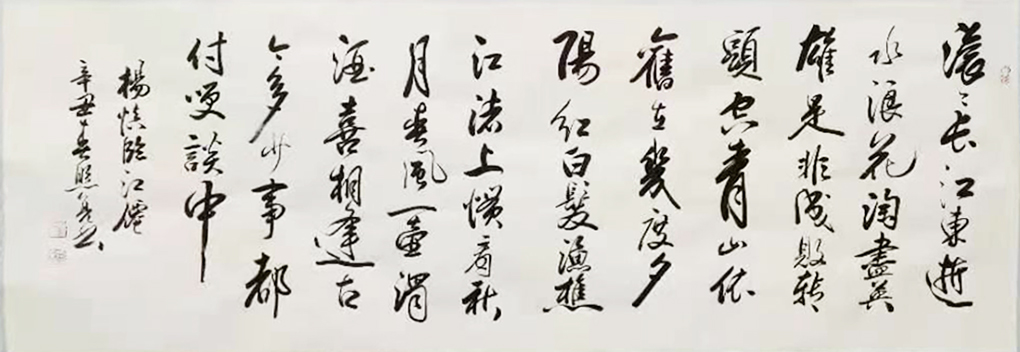 滚〻長江東逝
水浪花淘盡英
雄是非成敗轉
頭空青山依
舊在幾度夕
陽紅白髮漁樵
江渚上慣看秋
月春風一壺濁
酒喜相逢古
今多少事都
付笑談中
楊慎臨江僊
辛丑